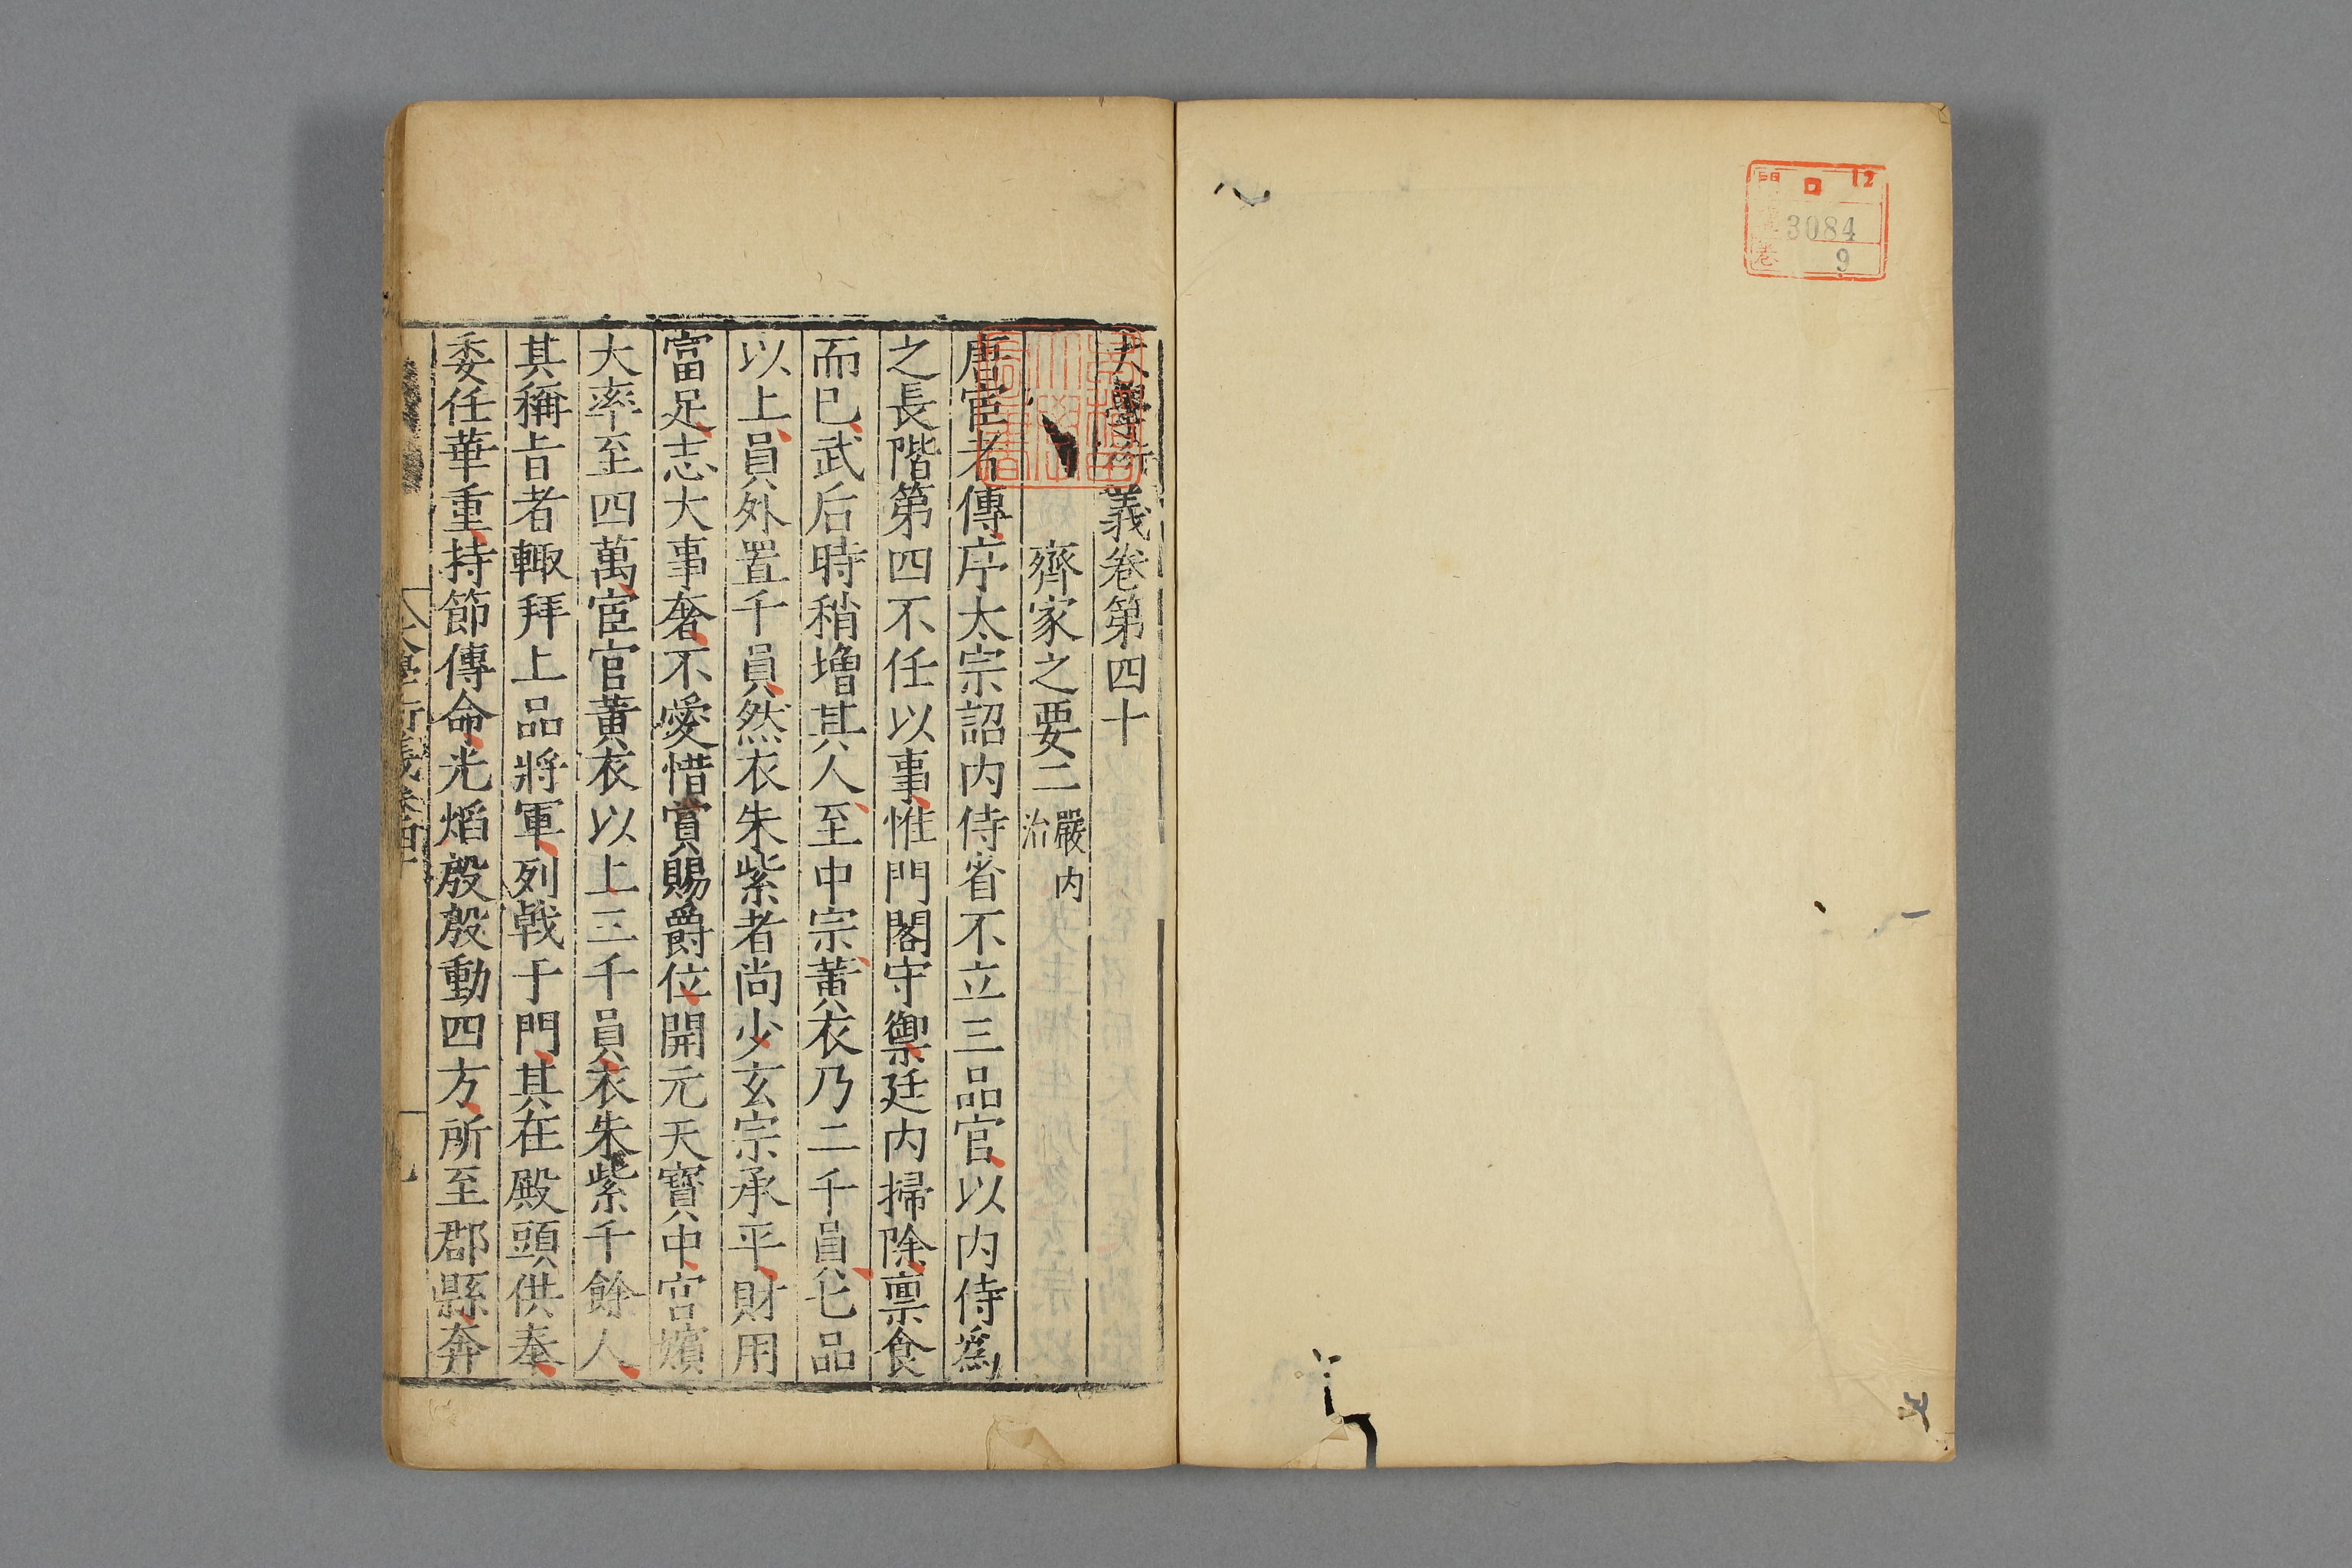 門 ロ 12
號 3084
卷 9
大學衍義卷第四十
齊家之要二 嚴内治
唐宦者傳序太宗詔内侍省不立三品官以内侍爲
之長階第四不任以事惟門閤守禦廷内掃除稟食
而已武后時稍增其人至中宗黃衣乃二千員七品
以上員外置千員然衣朱紫者尚少玄宗承平財用
富足志大事奢不愛惜賞賜爵位開元天寶中宮嬪
大率至四萬宦官黃衣以上三千員衣朱紫千餘人
其稱旨者輙拜上品將軍列戟于門其在殿頭供奉
委任華重持節傳命光熖殷殷動四方所至郡縣奔
大學衍義卷四十